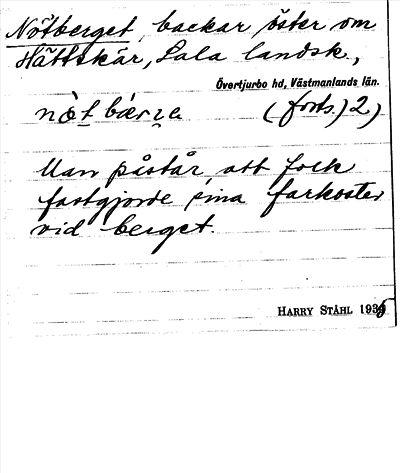 Nötberget, backar öster om
Hättskär, Sala landsk.,
Övertjurbo hd, Västmanlands län.
(forts.) 2)
Man påstår, att folk
fastgjorde sina farkoster
vid berget.
HARRY STÅHL 1935